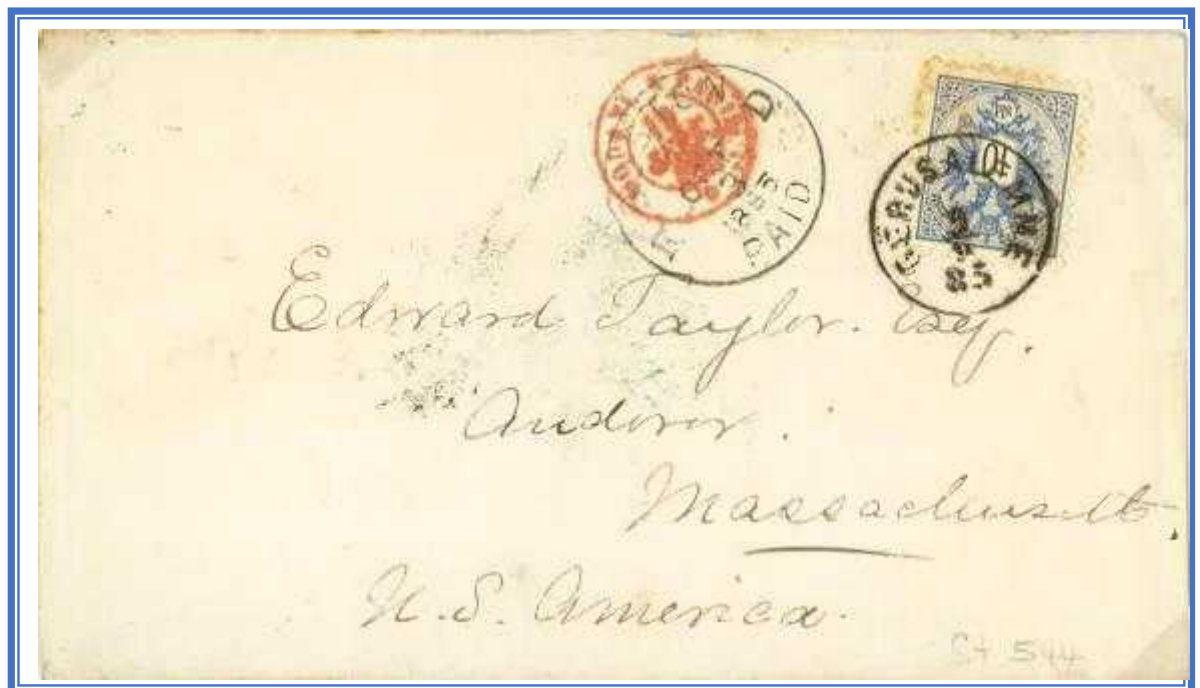 PAID
10
GERUSALEMME
9
85
Edward Taylor. Esq.
Andover.
Massachusetts,
U.S. America.
St 544